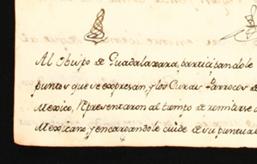 Al Obispo de Guadalaxara, participandole
puntos que se expresan, y los Curas Parrocos de
Mexico, representaron al tiempo de
Mexicano, y encargandole cuide de su